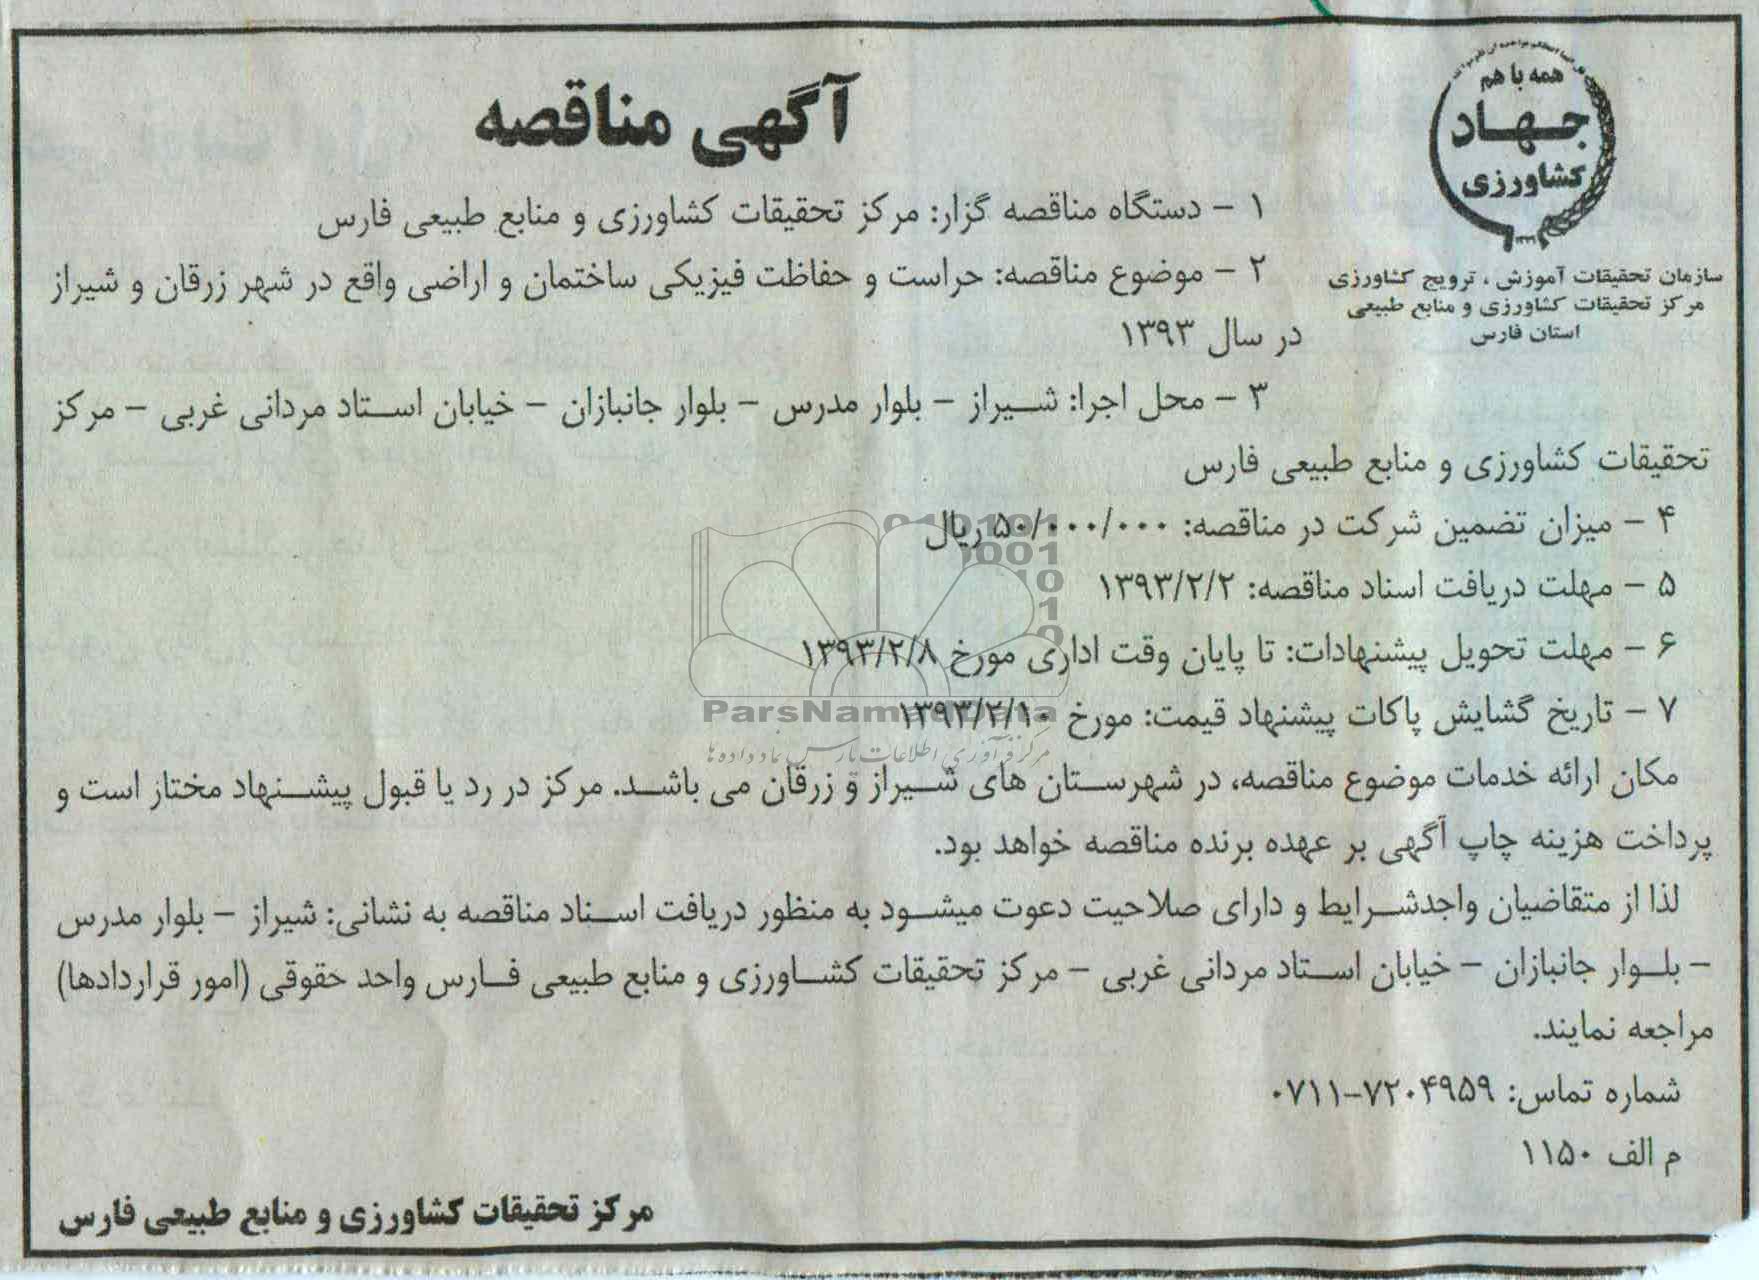 آگهی مناقصه
همه با هم
جهاد
کشاورزی
سازمان تحقیقات آموزش ، ترویج کشاورزی
مرکز تحقیقات کشاورزی و منابع طبیعی
استان فارس
۱ - دستگاه مناقصه گزار: مرکز تحقیقات کشاورزی و منابع طبیعی فارس
۲ - موضوع مناقصه: حراست و حفاظت فیزیکی ساختمان و اراضی واقع در شهر زرقان و شیراز
در سال ۱۳۹۳
۳ - محل اجرا: شیراز - بلوار مدرس - بلوار جانبازان - خیابان استاد مردانی غربی - مرکز
تحقیقات کشاورزی و منابع طبیعی فارس
۴ - میزان تضمین شرکت در مناقصه: ۵۰/۰۰۰/۰۰۰ ریال
۵ - مهلت دریافت اسناد مناقصه: ۱۳۹۳/۲/۲
۶ - مهلت تحویل پیشنهادات: تا پایان وقت اداری مورخ ۱۳۹۳/۲/۸
۷ - تاریخ گشایش پاکات پیشنهاد قیمت: مورخ ۱۳۹۳/۲/۱۰
ParsNamadData
مرکز فرآوری اطلاعات پارس نماد داده ها
مکان ارائه خدمات موضوع مناقصه، در شهرستان های شیراز و زرقان می باشد. مرکز در رد یا قبول پیشنهاد مختاز است و
پرداخت هزینه چاپ آگهی بر عهده برنده مناقصه خواهد بود.
لذا از متقاضیان واجدشرایط و دارای صلاحیت دعوت میشود به منظور دریافت اسناد مناقصه به نشانی: شیراز - بلوار مدرس
- بلوار جانبازان - خیابان استاد مردانی غربی - مرکز تحقیقات کشاورزی و منابع طبیعی فارس واحد حقوقی (امور قراردادها)
مراجعه نمایند.
شماره تماس: ۷۲۰۴۹۵۹-۰۷۱۱
م الف ۱۱۵۰
مرکز تحقیقات کشاورزی و منابع طبیعی فارس